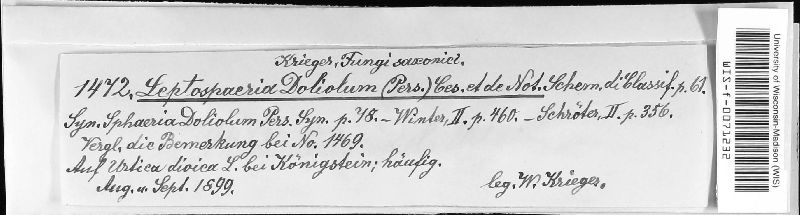 Krieger, Fungi saxonici.
1472. Leptospaeria Doliolum (Pers.) Ces. et de Not. Schem. di Classif. p. 61.
Syn. Sphaeria Doliolum Pers. Syn. p. 78. – Winter, II. p. 460. – Schröter, II. p. 356.
Vergl. die Bemerkung bei No. 1469.
Auf Urtica dioica L. bei Königstein; häufig.
Aug. u. Sept. 1899.
leg. W. Krieger.
University of Wisconsin-Madison (WIS)
WIS-f-0071232